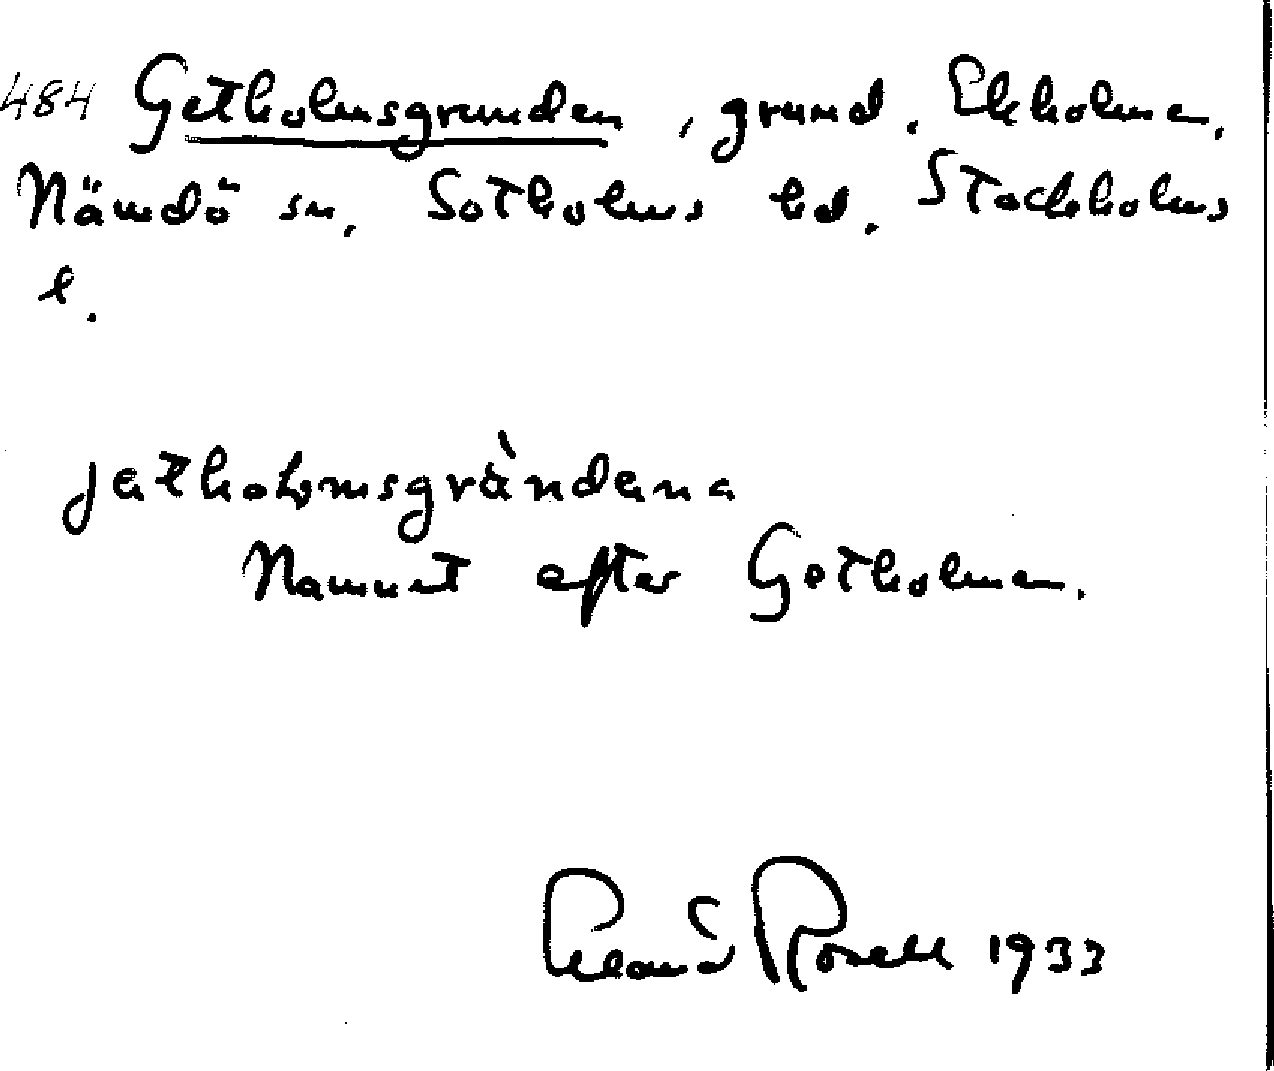 484 Getholmsgrunden, grund. Ekholmen.
Nämdö sn. Sotholms hd. Stockholms
l.
jetholmsgràndena
Namnet efter Getholmen.
Rosell 1933